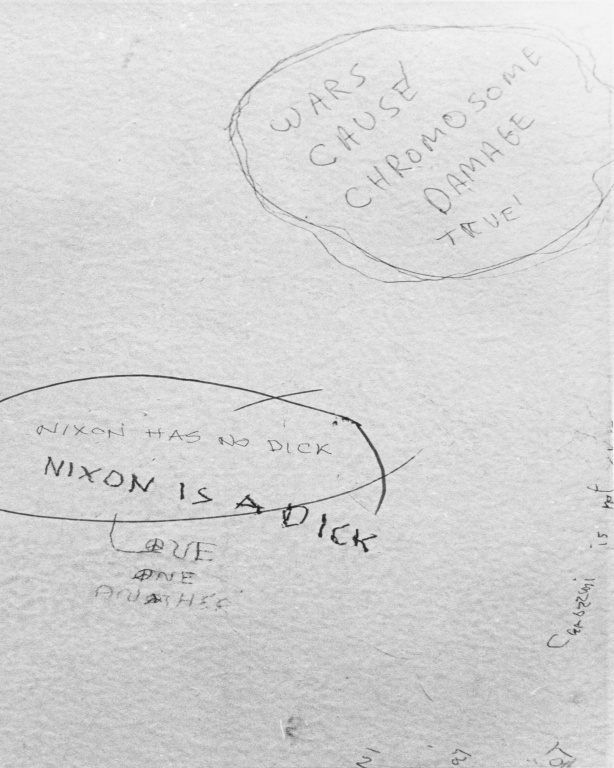 WARS
CAUSE
CHROMOSOME
DAMAGE
TRUE!
NIXON HAS NO DICK
NIXON IS A DICK
LOVE
ONE
ANOTHER
is not